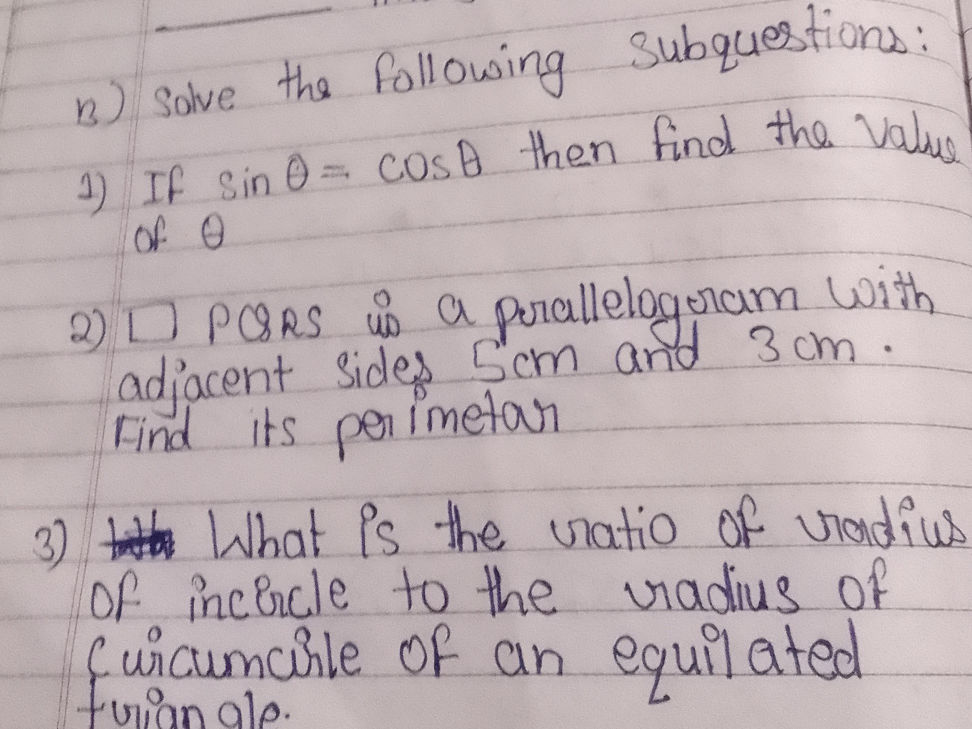 B) Solve the following subquestions:
1) If sin θ = cos θ then find the value
of θ
2) □ PQRS is a parallelogram with
adjacent sides 5cm and 3 cm.
Find its perimetar
3) What is the ratio of radius
of incircle to the radius of
Circumcircle of an equilated
triangle.